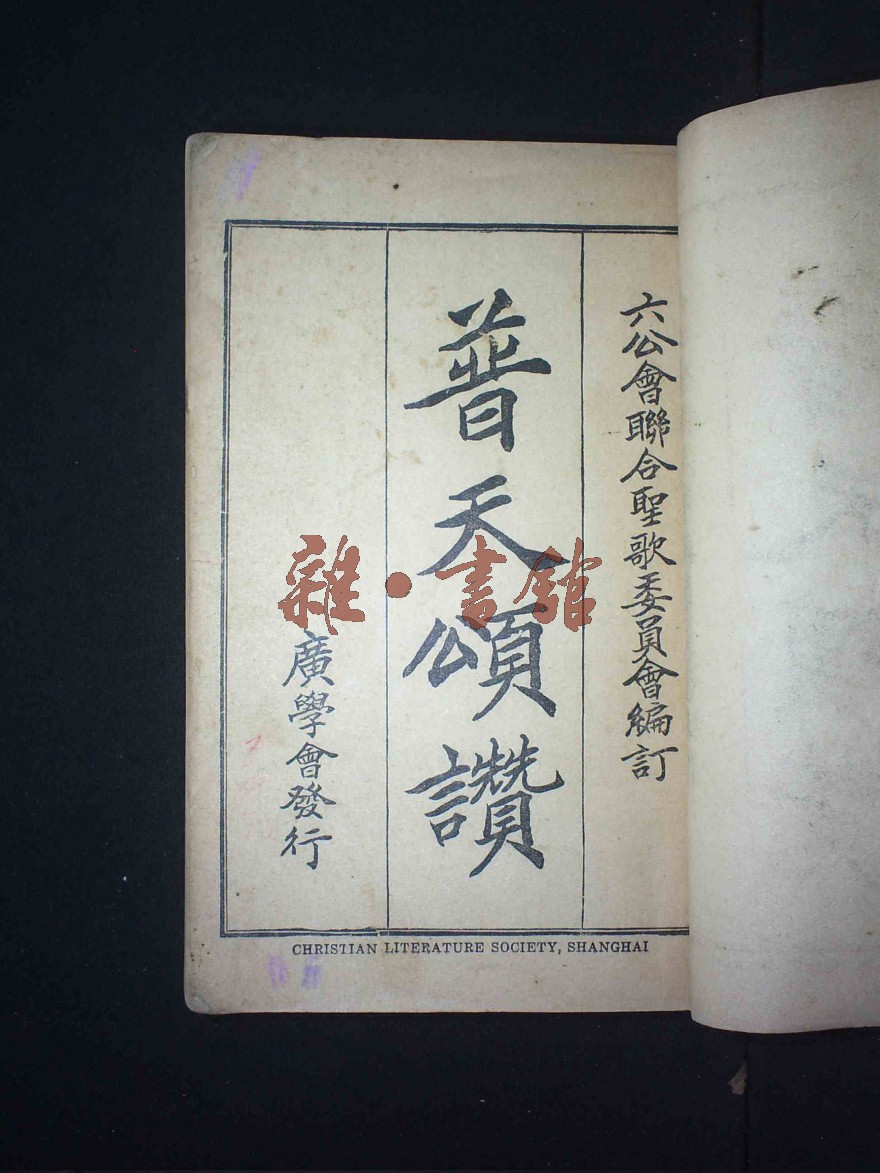 六公會聯合聖歌委員會編訂
普天頌讚
廣學會發行
CHRISTIAN LITERATURE SOCIETY, SHANGHAI
雜·書館